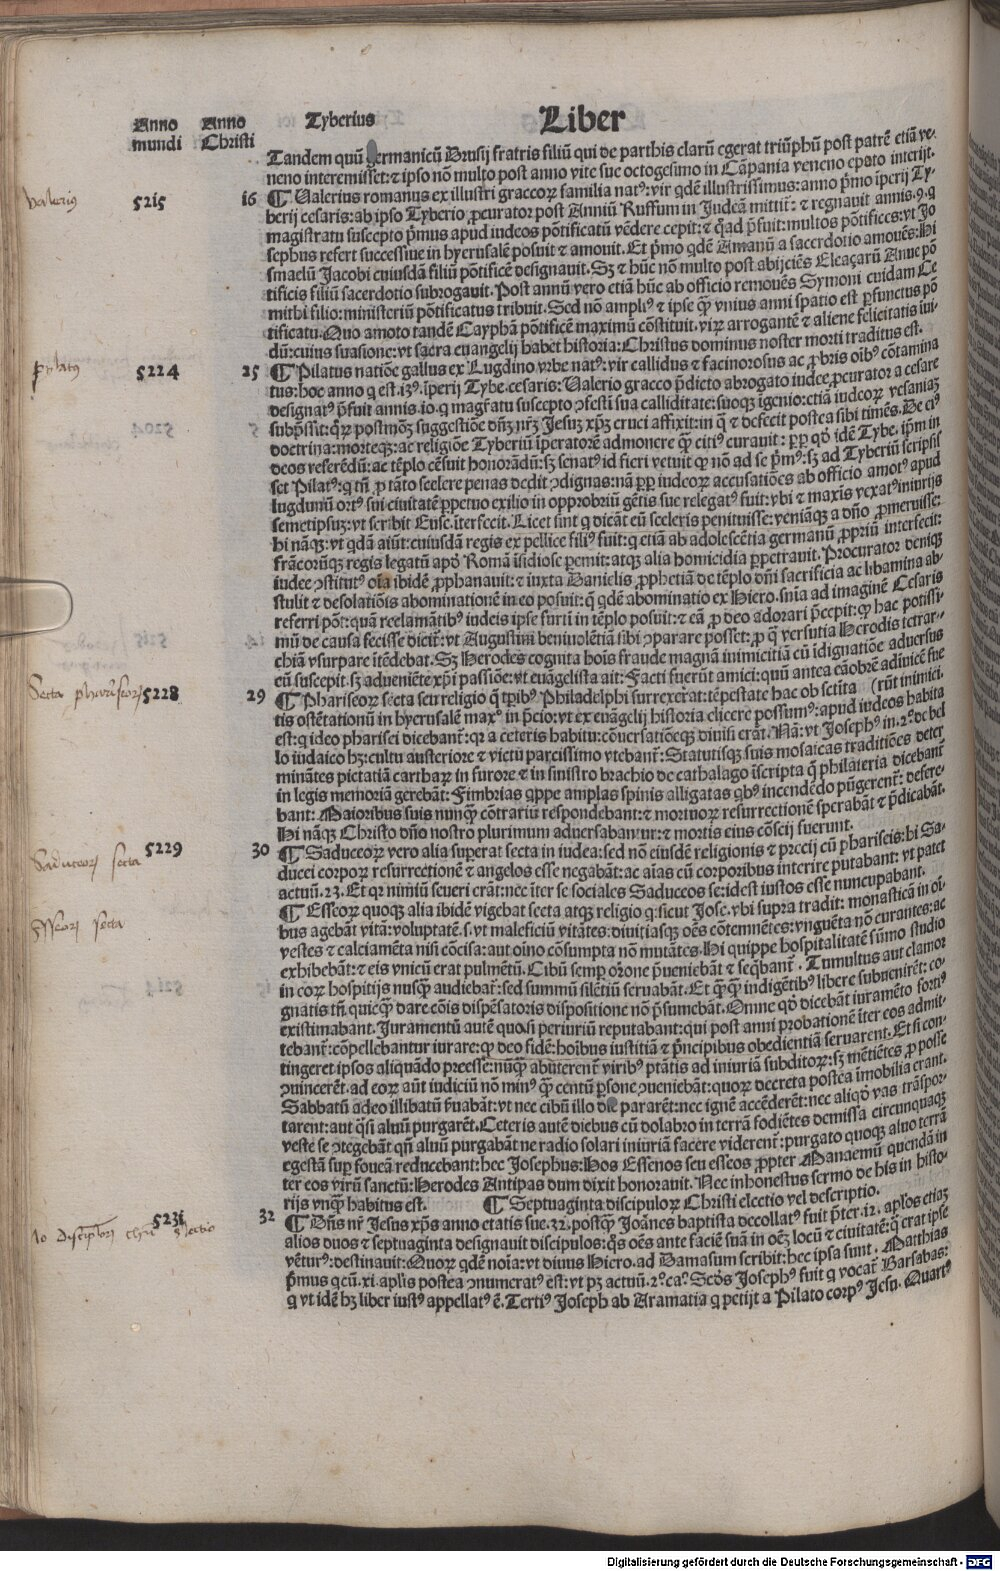 Anno Anno Tyberius Liber
mundi Christi
Tandem quū germanicū Drusij fratris filiū qui de parthis clarū egerat triūphū post patrē etiā ve⸗
neno interemisset: ⁊ ipso nō multo post anno vite sue octogesimo in Cāpania veneno epoto interijt.
valeriꝰ 5215 16 ¶ Valerius romanus ex illustri graccoꝝ familia natꝰ: vir qdē illustrissimus: anno p̄mo īperij Ty⸗
berij cesaris: ab ipso Tyberio ꝓcurator post Anniū Ruffum in Judeā mittit̄: ⁊ regnauit annis .9. q
magistratu suscepto p̄mus apud iudeos pōtificatū vēdere cepit: ⁊ q̄ad p̄fuit: multos pōtifices: vt Jo
sephus refert successiue in hyerusalē posuit ⁊ amouit. Et p̄mo qdē Amanū a sacerdotio amouēs: Hi
smaelū Jacobi cuiusdā filiū pōtificē designauit. Sꝫ ⁊ hūc nō multo post abijciēs Eleaçarū Anne pō
tificis filiū sacerdotio subrogauit. Post annū vero etiā hūc ab officio remouēs Symoni cuidam Ca
mithi filio: ministeriū pōtificatus tribuit. Sed nō ampliꝰ ⁊ ipse qꝫ vnius anni spatio est ꝑfunctus pō
tificatu. Quo amoto tandē Caypham pōtificē maximū cōstituit. virꝝ arrogantē ⁊ aliene felicitatis īui⸗
dū: cuius suasione: vt sacra euangelij habet historia: Christus dominus noster morti traditus est.
pylatꝰ 5224 25 ¶ Pilatus natiōe gallus ex Lugdino vrbe natꝰ: vir callidus ⁊ facinorosus ac ꝓbris oībꝰ cōtamina
tus: hoc anno q est .13ꝰ. īperij Tybe. cesaris: Valerio gracco p̄dicto abrogato iudee ꝓcurator a cesare
designatꝰ p̄fuit annis .10. q magr̄atu suscepto ꝯfestī sua calliditate: suoqꝫ īgenio: etiā iudeoꝝ vesaniaꝫ
subp̄ssit: qꝛ postmoꝫ suggestiōe dn̄ꝫ nr̄ꝫ Jesuꝫ xp̄ꝫ cruci affixit: in q ⁊ defecit postea sibi timēs. De eiꝰ
doctrina: morteqꝫ: ac religiōe Tyberiū īperatorē admonere qꝫ citiꝰ curauit: ꝑꝑ qđ idē Tybe. ip̄m in
deos referēdū: ac tēplo cēsuit honorādū: sꝫ senatꝰ id fieri vetuit qꝫ nō ad se p̄mꝰ: sꝫ ad Tyberiū scripsis
set Pilatꝰ: q tn̄ ꝓ tāto scelere penas dedit ꝯdignas: nā ꝑꝑ iudeoꝝ accusatiōes ab officio amotꝰ apud
lugdunū ortꝰ sui ciuitatē ꝑpetuo exilio in opprobriū gētis sue relegatꝰ fuit: vbi ⁊ maxīs vexatꝰ iniurijs
semetipsuꝫ: vt scribit Euse. īterfecit. Licet sint q dicāt eū sceleris penituisse: veniāqꝫ a dn̄o ꝓmeruisse:
hi nāqꝫ: vt qdā aiūt: cuiusdā regis ex pellice filiꝰ fuit: q etiā ab adolescētia germanū ꝓpriū interfecit:
frācorūqꝫ regis legatū apđ Romā īsidiose ꝑemit: atqꝫ alia homicidia ꝑpetrauit. Procurator deniqꝫ
iudee ꝯstitutꝰ oīa ibidē ꝓphanauit: ⁊ iuxta Danielis ꝓphetiā de tēplo dn̄i sacrificia ac libamina ab⸗
stulit ⁊ desolatiōis abominationē in eo posuit: q̄ qdē abominatio ex Hiero. sn̄ia ad imaginē Cesaris
referri pōt: quā reclamātibꝰ iudeis ipse furti in tēplo posuit: ⁊ eā ꝓ deo adorari p̄cepit: qꝫ hac potissi
mū de causa fecisse dicit̄: vt Augustini beniuolētiā sibi ꝯparare posset: ꝓ q̄ versutia Herodis tetrar⸗
chiā vsurpare ītēdebat. Sꝫ Herodes cognita hoīs fraude magnā inimicitiā cū īdignatiōe aduersus
eū suscepit. sꝫ adueniēte xp̄i passiōe: vt euāgelista ait: Facti fuerūt amici: quū antea eāobrē adiuicē fue
Secta phariseorꝝ 5228 29 ¶ Phariseoꝝ secta seu religio q̄ tp̄ibꝰ Philadelphi surrexerat: tēpestate hac ob sctīta (rūt inimici.
tis ostētationū in hyerusalē maxꝰ in p̄cio: vt ex euāgelij historia elicere possumꝰ: apud iudeos habita
est: q ideo pharisei dicebant̄: qꝛ a ceteris habitu: cōuersatiōeqꝫ diuisi erāt. Nā: vt Josephꝰ in .2.º de bel
lo iudaico hꝫ: cultu austeriore ⁊ victu parcissimo vtebant̄: Statutisqꝫ suis mosaicas traditiōes deter
minātes pictatiā carthaꝝ in furore ⁊ in sinistro brachio de cathalago īscripta q̄ philateria dicebant̄
in legis memoriā gerebāt: Fimbrias qppe amplas spinis alligatas qbꝰ incedēdo pūgerent̄: defere⸗
bant: Maioribus suis nunqꝫ cōtrariū respondebant: ⁊ mortuoꝝ resurrectionē sperabāt ⁊ p̄dicabāt.
Hi nāqꝫ Christo dn̄o nostro plurimum aduersabantur: ⁊ mortis eius cōscij fuerunt.
Saduceorꝝ secta 5229 30 ¶ Saduceoꝝ vero alia suꝑerat secta in iudea: sed nō eiusdē religionis ⁊ precij cū phariseis: hi Sa⸗
ducei corpoꝝ resurrectionē ⁊ angelos esse negabāt: ac aīas cū corporibus interire putabant: vt patet
actuū .23. Et qꝛ nimiū seueri erāt: nec īter se sociales Saduceos se: idest iustos esse nuncupabant.
Esseorꝝ secta ¶ Esseoꝝ quoqꝫ alia ibidē vigebat secta atqꝫ religio q: sicut Jose. vbi supra tradit: monasticā in oī⸗
bus agebāt vitā: voluptatē .s. vt maleficiū vitātes: diuitiasqꝫ oēs cōtemnētes: vnguēta nō curantes: ac
vestes ⁊ calciamēta nisi cōcisa: aut oīno cōsumpta nō mutātes. Hi quippe hospitalitatē sūmo studio
exhibebāt: ⁊ eis vnicū erat pulmētū. Cibū semꝑ or̄one p̄ueniebāt ⁊ seqbant̄. Tumultus aut clamor
in eoꝝ hospitijs nusqꝫ audiebat̄: sed summū silētiū seruabāt. Et qꝫqꝫ indigētibꝰ libere subuenirēt: co⸗
gnatis tn̄ quicqꝫ dare cōis dispēsatoris dispositione nō p̄sumebāt. Omne qđ dicebāt iuramēto fortiꝰ
existimabant. Juramentū autē quasi periuriū reputabant: qui post anni probationē īter eos admit⸗
tebant̄: cōpellebantur iurare: qꝫ deo fidē: hoībus iustitiā ⁊ p̄ncipibus obedientiā seruarent. Et si con⸗
tingeret ipsos aliquādo preesse: nūqꝫ abuterent̄ viribꝰ ptātis ad iniuriā subditoꝝ: sꝫ mētiētes ꝓ posse
ꝯuincerēt. ad eoꝝ aūt iudiciū nō minꝰ qꝫ centū ꝑsone ꝯueniebāt: quoꝝ decreta postea īmobilia erant.
Sabbatū adeo illibatū s̄uabāt: vt nec cibū illo die pararēt: nec ignē accēderēt: nec aliqđ vas trāspor⸗
tarent: aut q̄si aluū purgarēt. Ceteris autē diebus cū dolabro in terrā fodiētes demissa circunquaqꝫ
veste se ꝯtegebāt qn̄ aluū purgabāt ne radio solari iniuriā facere viderent̄: purgato quoqꝫ aluo terrā
egestā suꝑ foueā reducebant: hec Josephus: Hos Essenos seu esseos ꝓpter Manaemū quendā in
ter eos virū sanctū: Herodes Antipas dum dixit honorauit. Nec inhonestus sermo de his in histo⸗
rijs vnqꝫ habitus est. ¶ Septuaginta discipuloꝝ Christi electio vel descriptio.
70 discipulorꝝ christi electio 5231 32 ¶ Dn̄s nr̄ Jesus xp̄s anno etatis sue .32. postqꝫ Joānes baptista decollatꝰ fuit p̄ter .12. apl̄os etiaꝫ
alios duos ⁊ septuaginta designauit discipulos: q̄s oēs ante faciē suā in oēꝫ locū ⁊ ciuitatē: q̄ erat ipse
vēturꝰ: destinauit: Quoꝝ qdē noīa: vt diuus Hiero. ad Damasum scribit: hec ipsa sunt. Matthias
p̄mus q cū .xi. apl̄is postea ꝯnumeratꝰ est: vt pꝫ actuū .2.º ca.º Scđs Josephꝰ fuit q vocat̄ Barsabas:
q vt idē hꝫ liber iustꝰ appellatꝰ ē. Tertiꝰ Joseph ab Aramatia q petijt a Pilato corpꝰ Jesu. Quartꝰ
Digitalisierung gefördert durch die Deutsche Forschungsgemeinschaft - DFG